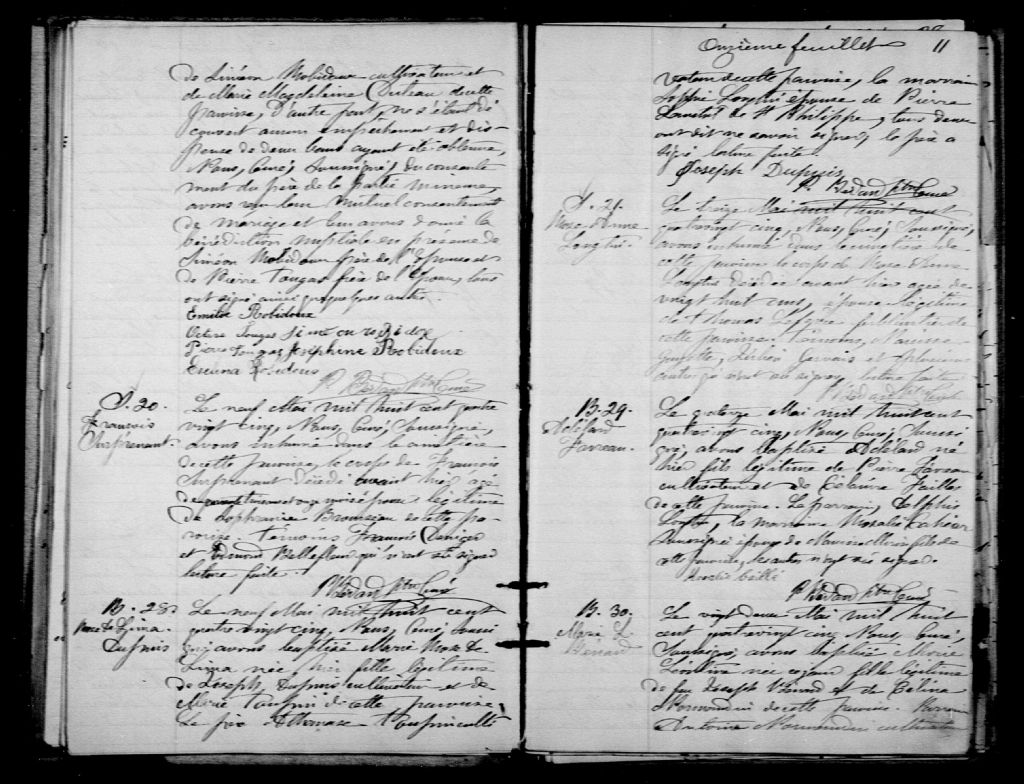 de Siméon Robidoux cultivateur et
de Marie Magdeleine Duteau de cette
paroisse, D'autre part, ne s'étant dé
couvert aucun empêchement et dis
pense de deux bans ayant été obtenue,
Nous, Curé, soussigné, du consente
ment du père de la partie mineure,
avons reçu leur mutuel consentement
de mariage et leur avons donné la
bénédiction nuptiale en présence de
Siméon Robidoux père de l'Epouse et
de Pierre Tougas père de l'Epoux, tous
ont signé ainsi que quelques autres.
Emilie Robidoux
Octave Touges Siméon Robidoux
Pierre Tougas Joséphine Robidoux
Robidoux
Bédard Ptre Curé
S. 20.
François
Surprenant.
Le neuf Mai mil huit cent quatre
vingt cinq, Nous, Curé, Soussigné,
avons inhumé dans le cimetière
de cette paroisse, le corps de François
Surprenant décédé avant hier agé
de époux légitime
de Sophranie Brousseau de cette pa-
roisse. Témoins François
et Bellefleur qui n'ont su signer
lecture faite.
Bédard Ptre Curé
B. 28.
Rose de Lima
Dupuis
Le neuf Mai mil huit cent
quatre vingt cinq, Nous, Curé, Soussi
gné, avons baptisé Marie Rose de
Lima née hier fille légitime
de Joseph Dupuis cultivateur et de
Marie de cette paroisse.
Le père
Onzième feuillet 11
de cette paroisse, la marraine
Sophie Longtin épouse de Pierre
de St Philippe, tous deux
ont dit ne savoir signer, le père a
signé lecture faite.
Joseph Dupuis
Bédard Ptre Curé
S. 21.
Rose Anne
Longtin.
Le treize Mai mil huit cent
quatre vingt cinq, Nous, Curé, Soussigné,
avons inhumé dans le cimetière de
cette paroisse le corps de Rose Anne
Longtin décédée avant hier agée de
vingt huit ans, épouse légitime
de Thomas Lefebvre de
cette paroisse. Témoins, Narcisse
Gervais et plusieurs
autres qui n'ont su signer, lecture faite.
Bédard Ptre Curé
B. 29.
Adélard
Favreau.
Le quatorze Mai mil huit cent
quatre vingt cinq, Nous, Curé, Soussi
gné, avons baptisé Adélard né
hier fils légitime de Pierre Favreau
cultivateur et de Célanire
de cette paroisse. Le parrain, Delphis
la marraine Rosalie
soussignée épouse de de
cette paroisse, les autres n'ont su signer.
Bédard Ptre Curé
B. 30.
Marie L.
Le vingt deux Mai mil huit
cent quatre vingt cinq Nous, Curé,
Soussigné, avons baptisé Marie
née ce jour fille légitime
de feu Joseph et de Célina
Normandin de cette paroisse. Parrain
Antoine Normandin cultivat